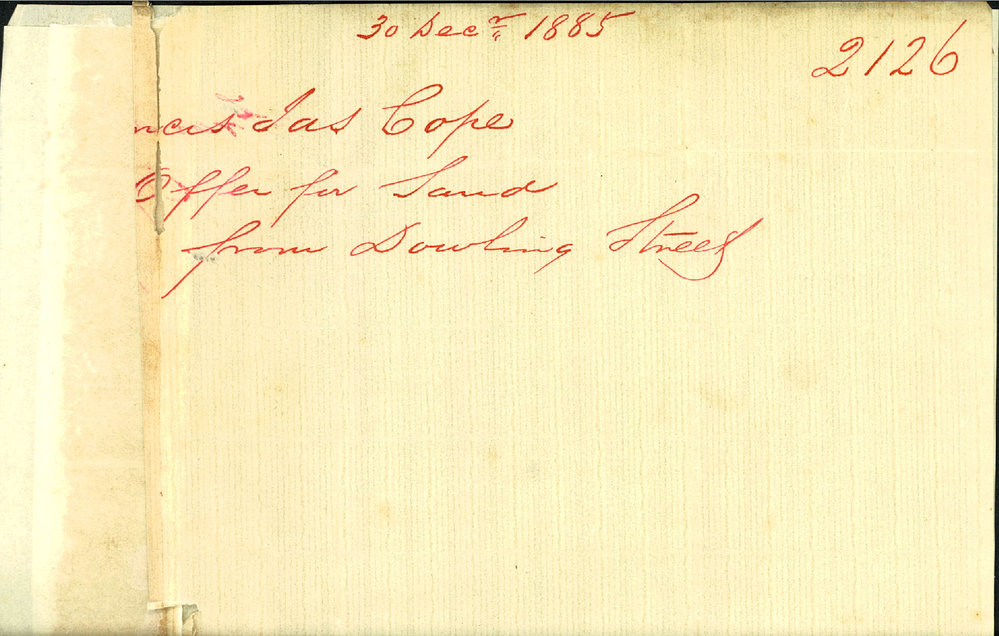 30 Decr 1885
2126
ncis Jas Cope
Offer for Sand
from Dowling Street